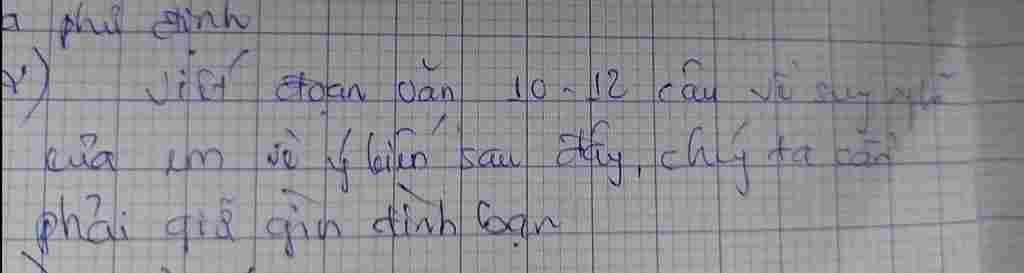 phủ định
Viết đoạn văn 10-12 câu về suy nghĩ
của em về ý kiến sau đây, chúng ta cần
phải giữ gìn tình bạn